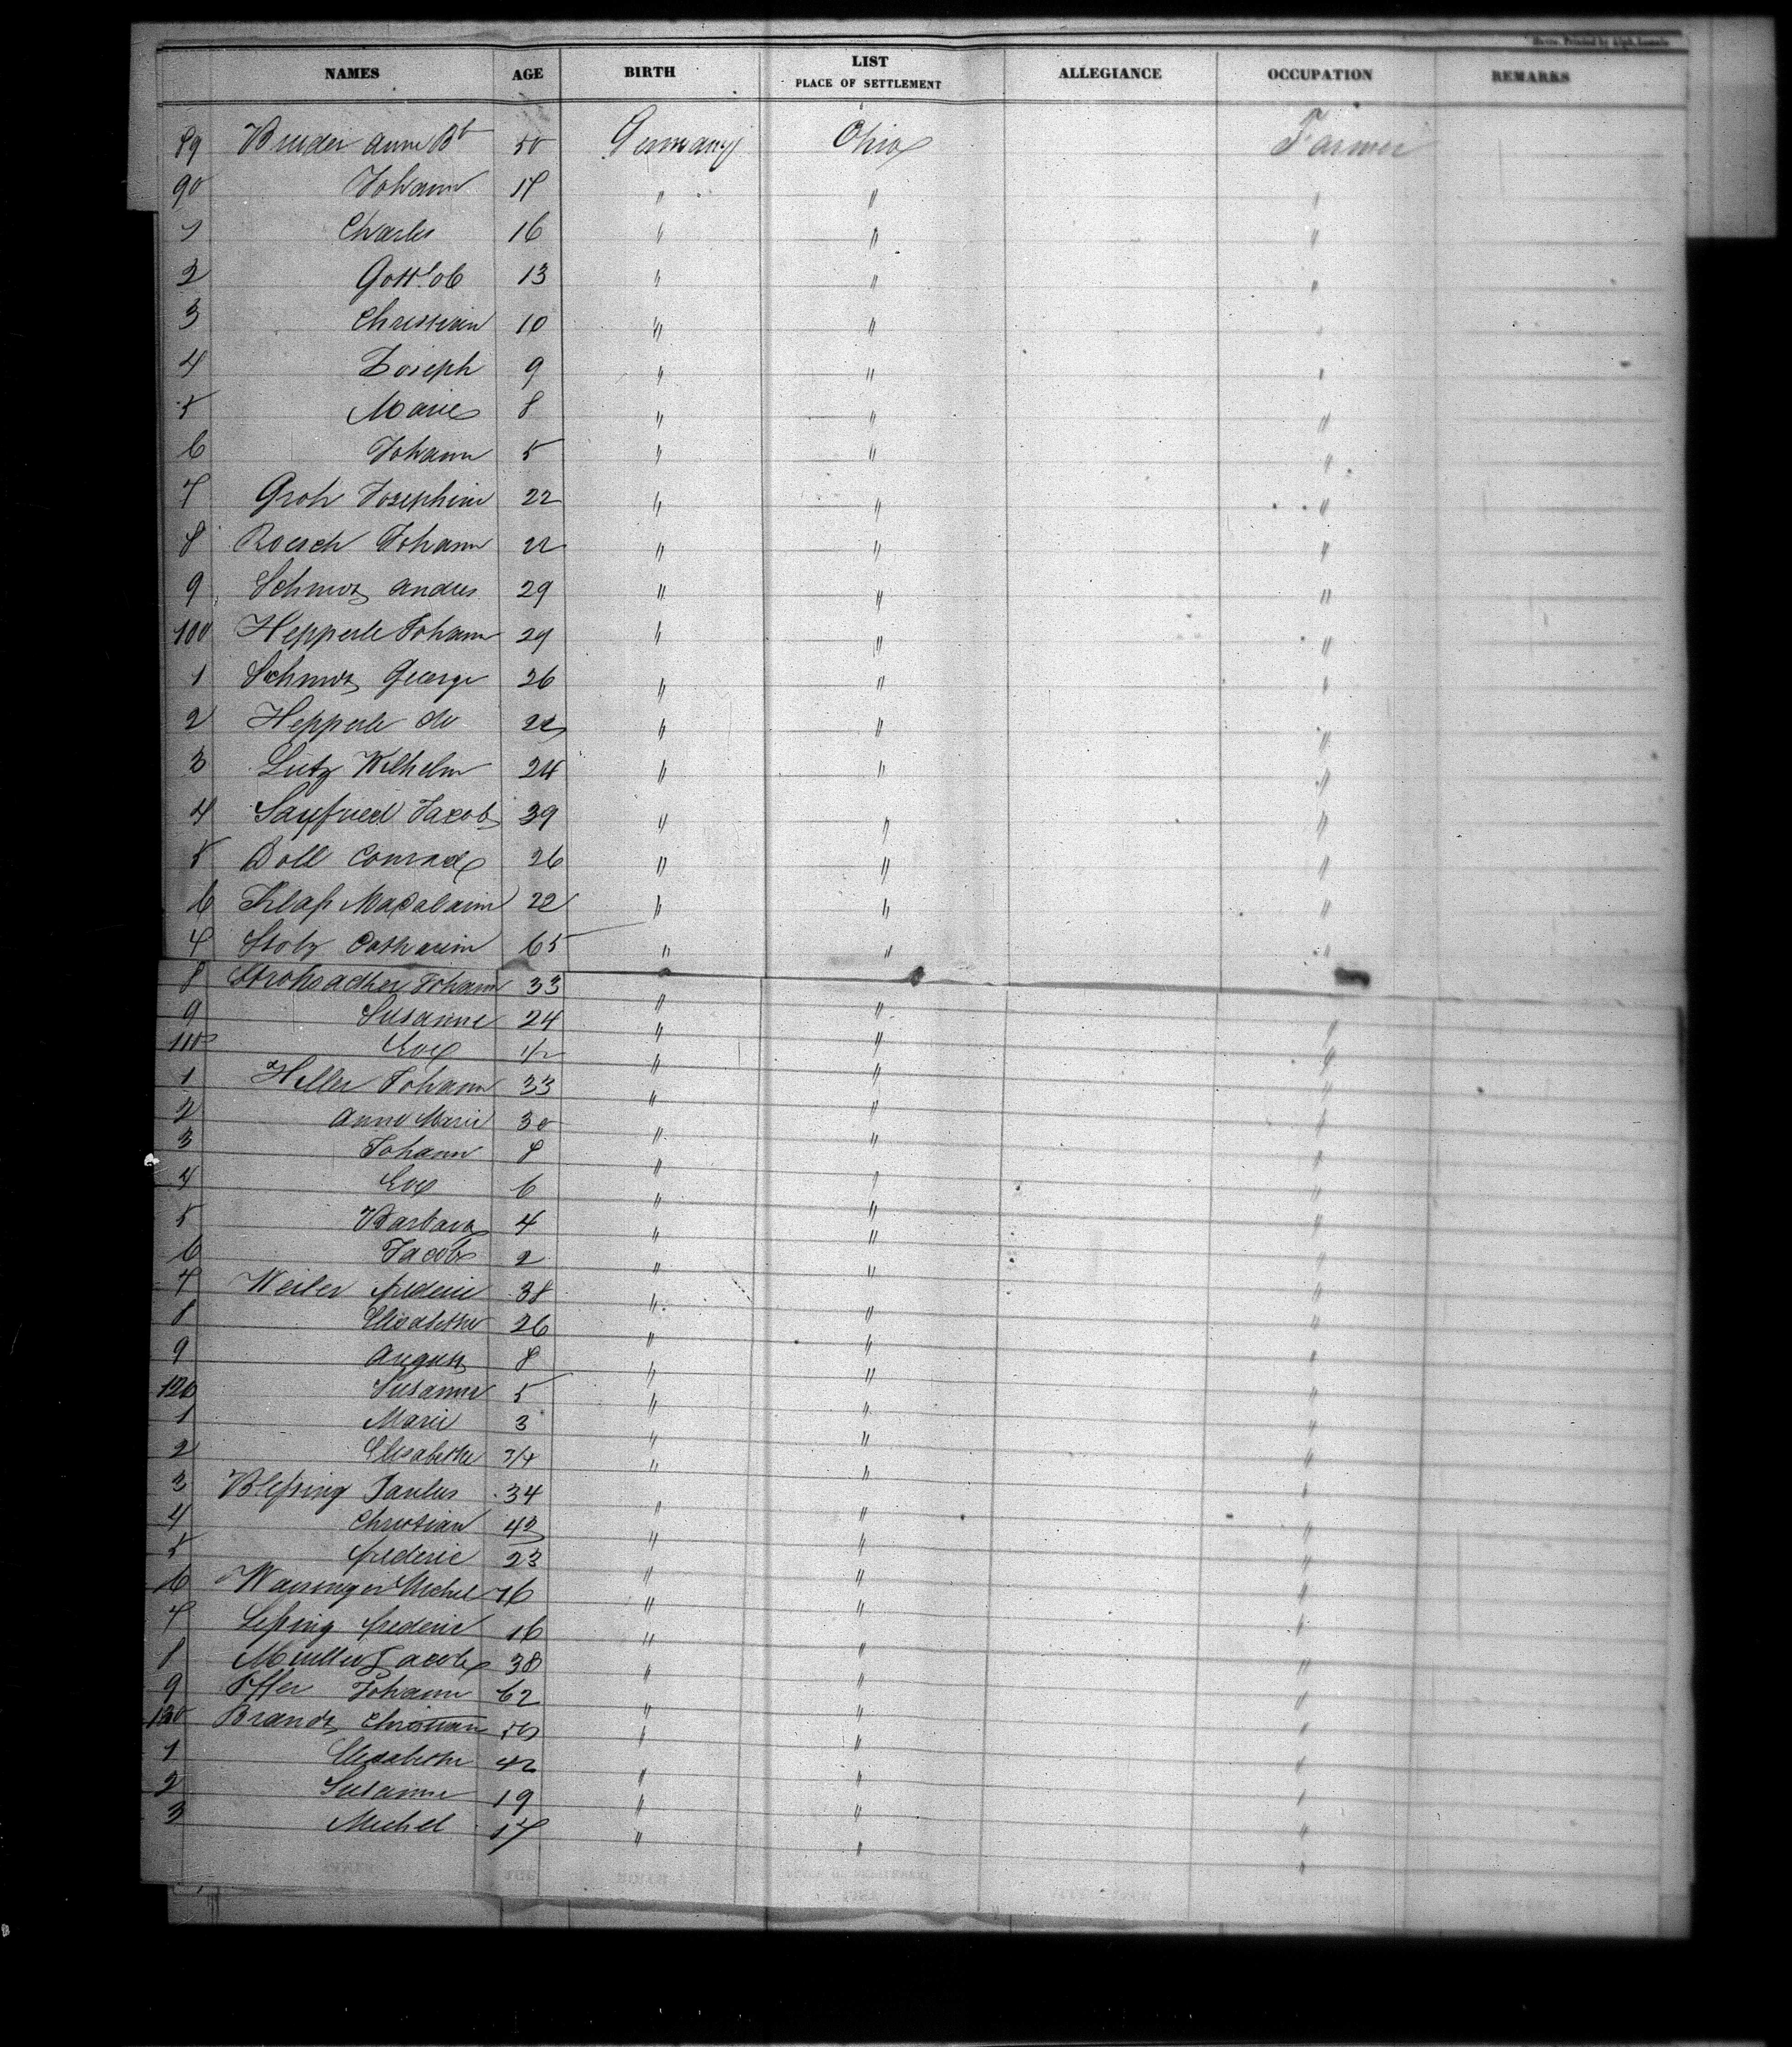 Havre. Printed by Alph. Lemale
NAMES AGE BIRTH LIST PLACE OF SETTLEMENT ALLEGIANCE OCCUPATION REMARKS
89 Bruder Anne Bt 50 Germany Ohio Farmer
90 Johann 17 " " "
1 Charles 16 " " "
2 Gottlob 13 " " "
3 Christian 10 " " "
4 Joseph 9 " " "
5 Marie 8 " " "
6 Johann 5 " " "
7 Groh Josephine 22 " " "
8 Roesch Johann 22 " " "
9 Schmoz Andres 29 " " "
100 Hepperle Johann 29 " " "
1 Schmoz George 26 " " "
2 Hepperle do 22 " " "
3 Lutz Wilhelm 24 " " "
4 Sayfried Jacob 39 " " "
5 Doll Conrad 26 " " "
6 Klaß Madalaine 22 " " "
7 Stolz Catharine 65 " " "
8 Johann 33 " "
9 Susanne 24 " " "
110 Eve 1/2 " " "
1 Heller Johann 33 " " "
2 Anne Marie 30 " " "
3 Johann 8 " " "
4 Eve 6 " " "
5 Barbara 4 " " "
6 Jacob 2 " " "
7 Weiler frederic 38 " " "
8 Elisabethe 26 " " "
9 August 8 " " "
120 Susanne 5 " " "
1 Marie 3 " " "
2 Elisabethe 3/4 " " "
3 Bleßing Paulus 34 " " "
4 Christian 42 " " "
5 frederic 23 " " "
6 Michel 16 " " "
7 Leßing frederic 16 " " "
8 Muller Jacob 38 " " "
9 Offer Johann 62 " " "
130 Brandt Christian 50 " " "
1 Elisabethe 42 " " "
2 Susanne 19 " " "
3 Michel 17 " " "